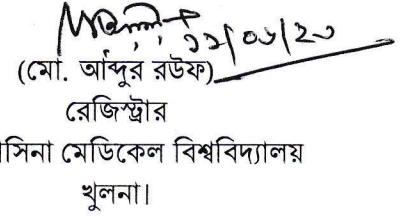 ২২/০৬/২৩
(মো. আব্দুর রউফ)
রেজিস্ট্রার
সিনা মেডিকেল বিশ্ববিদ্যালয়
খুলনা।